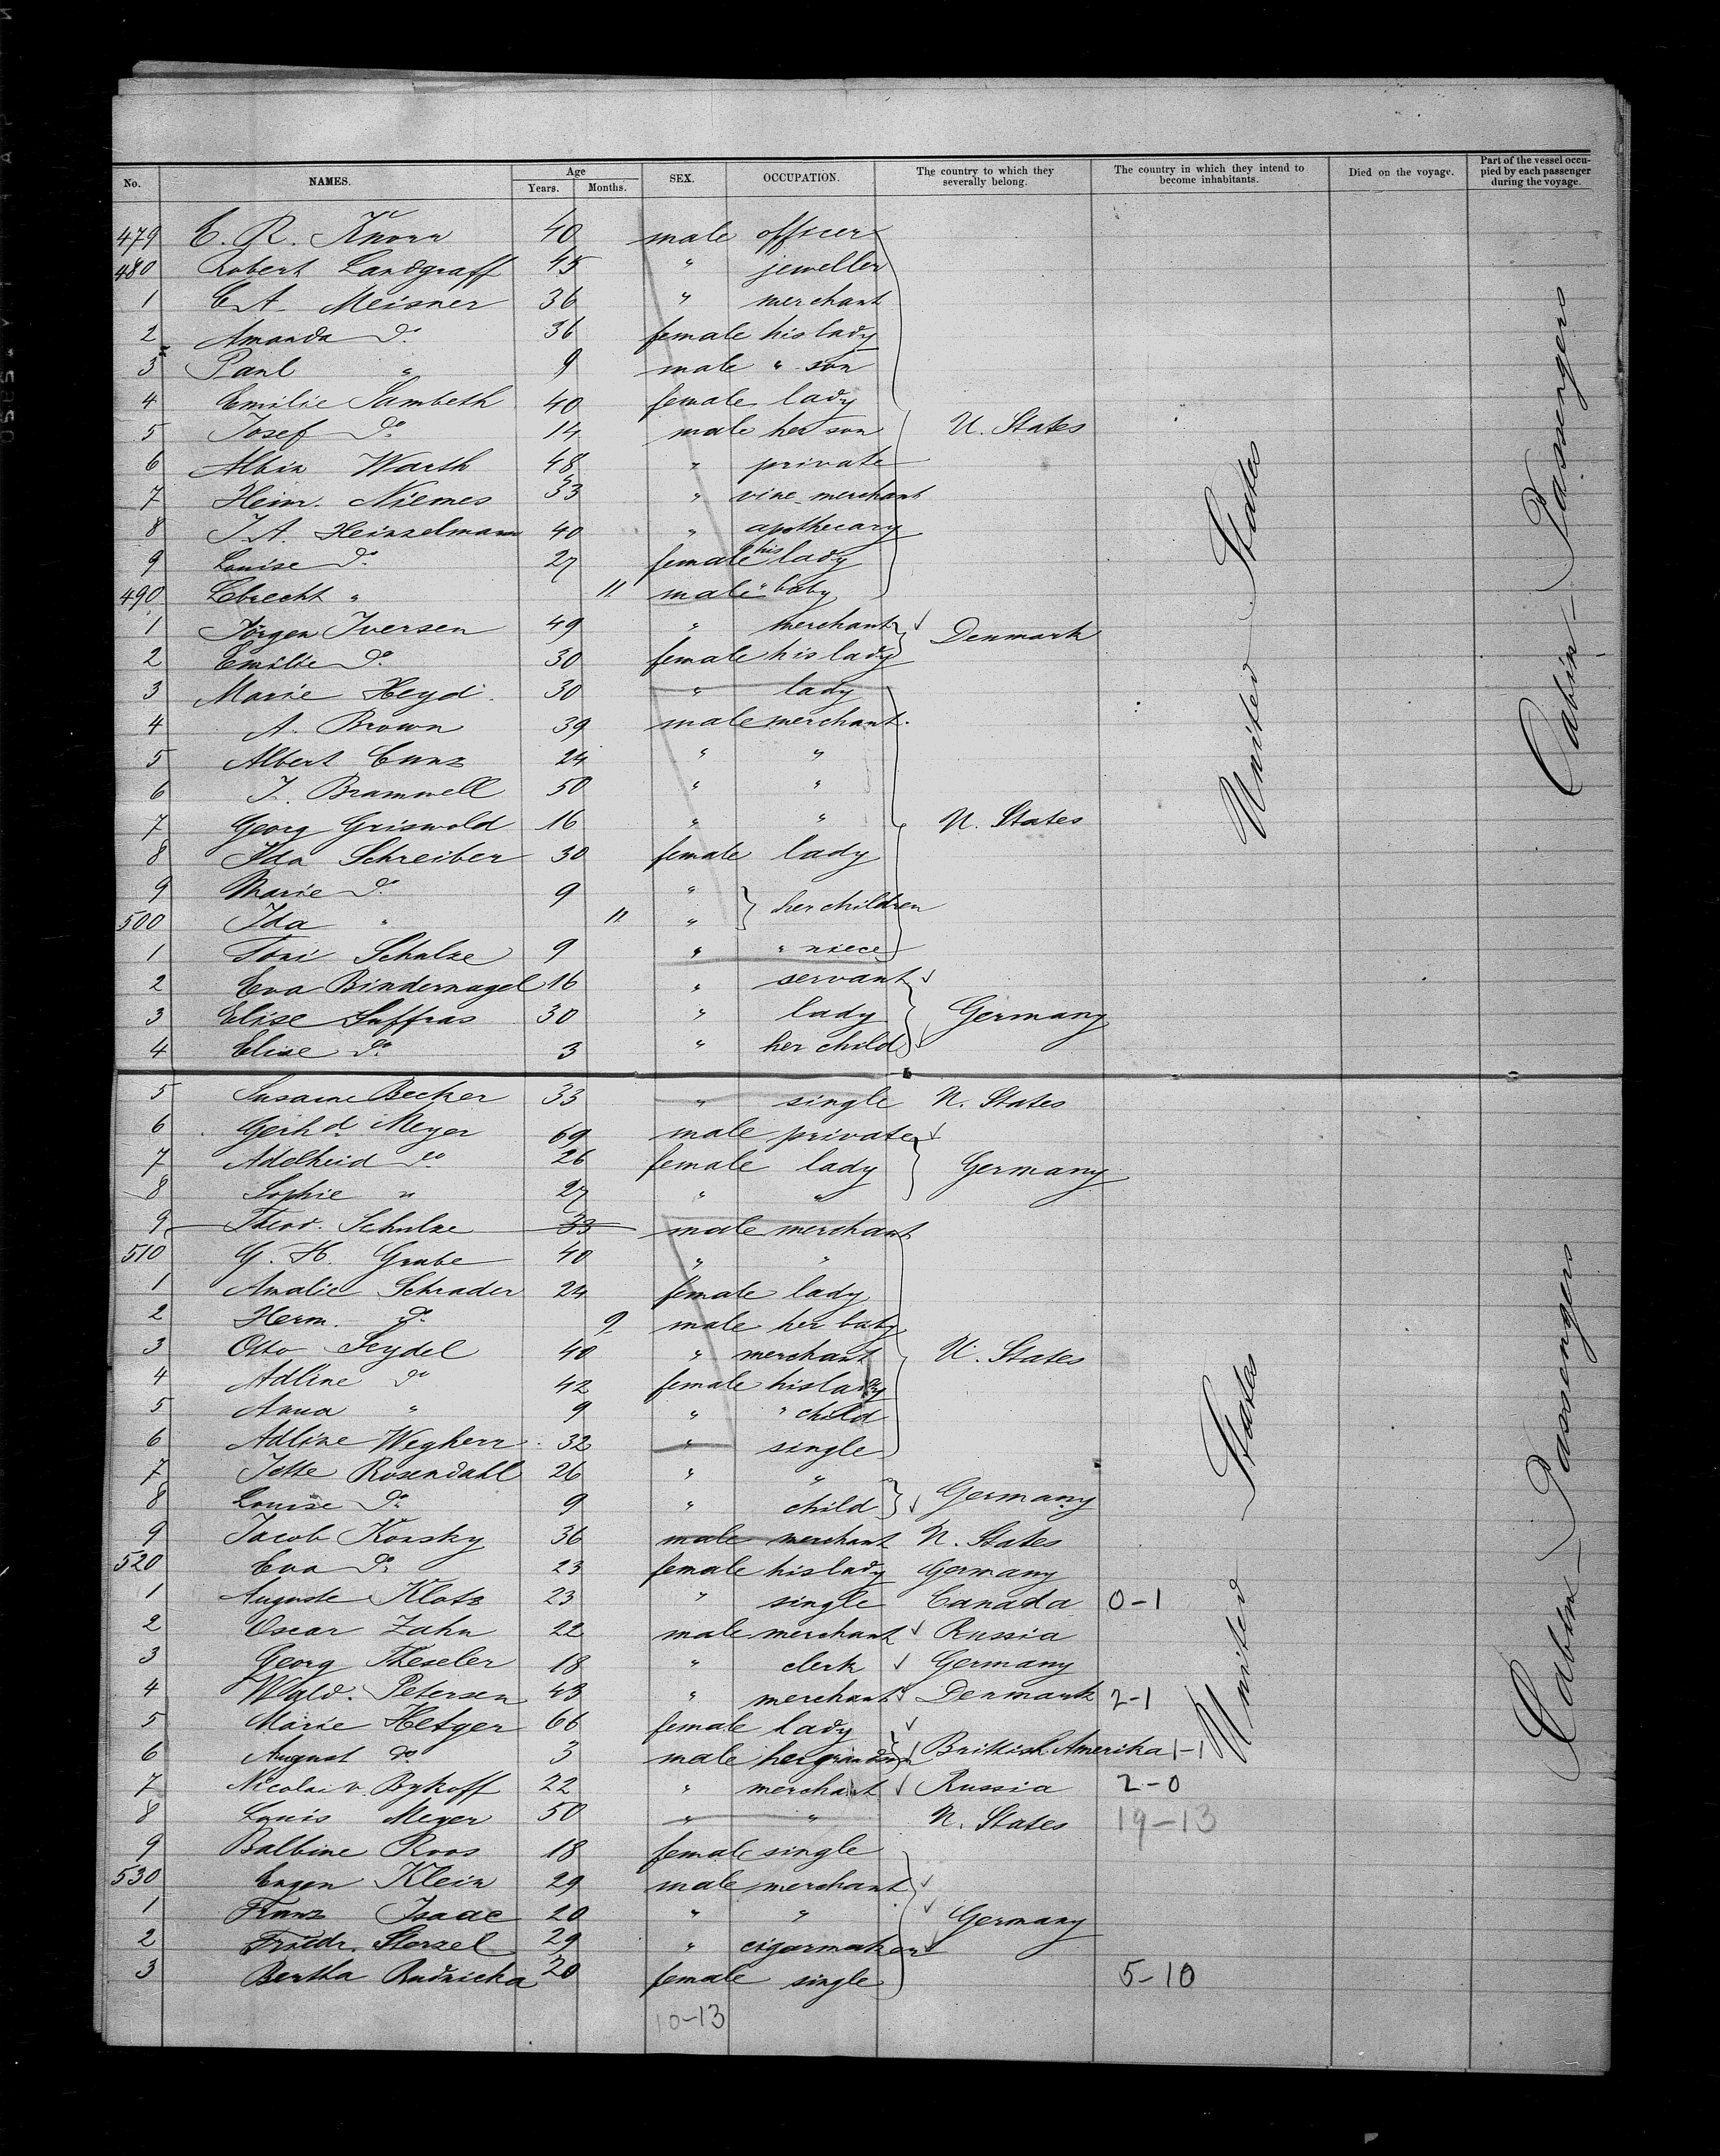 No. NAMES. Age Years. Months. SEX. OCCUPATION. The country to which they severally belong. The country in which they intend to become inhabitants. Died on the voyage. Part of the vessel occupied by each passenger during the voyage.
479 C. R. Knorr 40 male officer
480 Robert Landgraff 45 " jeweller
1 C. A. Meisner 36 " merchant
2 Amanda do. 36 female his lady
3 Paul " 9 male " son
4 Emilie Sambeth 40 female lady
5 Josef do. 14 male her son U. States
6 Albin Warth 48 " private
7 Heinr. Niemes 33 " vine-merchant
8 J. A. Heinzelmann 40 " apothecary
9 Louise do. 27 female his lady
490 Lebrecht " 11 male " baby
1 Jörgen Iversen 49 " merchant Denmark
2 Emilie do. 30 female his lady
3 Marie Heyd. 30 " lady
4 A. Brown 39 male merchant.
5 Albert Cunz 24 " "
6 J. Bramwell 50 " "
7 Georg Griswold 16 " " U. States
8 Ida Schreiber 30 female lady
9 Marie do. 9 " her children
500 Ida " 11 "
1 Toni Schulze 9 " " niece
2 Eva Bindernagel 16 " servant
3 Elise Suffras 30 " lady Germany
4 Elise do. 3 " her child
5 Susanne Becker 33 " single U. States
6 Gerhd. Meyer 69 male private
7 Adelheid do. 26 female lady Germany
8 Sophie " 27 " "
9 Theod. Schulze 33 male merchant
510 G. H. Grube 40 " "
1 Amalie Schrader 24 female lady
2 Herm. do. 9 male her baby
3 Otto Seydel 40 " merchant U. States
4 Adline do 42 female his lady
5 Anna " 9 " " child
6 Adline Wegherr 32 " single
7 Jette Rosendahl 26 " "
8 Louise do. 9 " child Germany
9 Jacob Korsky 36 male merchant U. States
520 Eva do. 23 female his lady Germany
1 Auguste Klotz 23 " single Canada 0-1
2 Oscar Zahn 22 male merchant Russia
3 Georg Theseler 18 " clerk Germany
4 Wald. Petersen 43 " merchant Denmark 2-1
5 Marie Hetger 66 female lady
6 August do 3 male her grandson British Amerika 1-1
7 Nicolai v. Bykoff 22 " merchant Russia 2-0
8 Louis Meyer 50 " " U. States 19-13
9 Balbine Roos 18 female single
530 Eugen Klein 29 male merchant
1 Franz Isaac 20 " " Germany
2 Friedr. Storzel 29 " cigarmaker
3 Bertha Rudnicka 20 female single 5-10
10-13
United States
Cabin-Passengers
United States
Cabin-Passengers